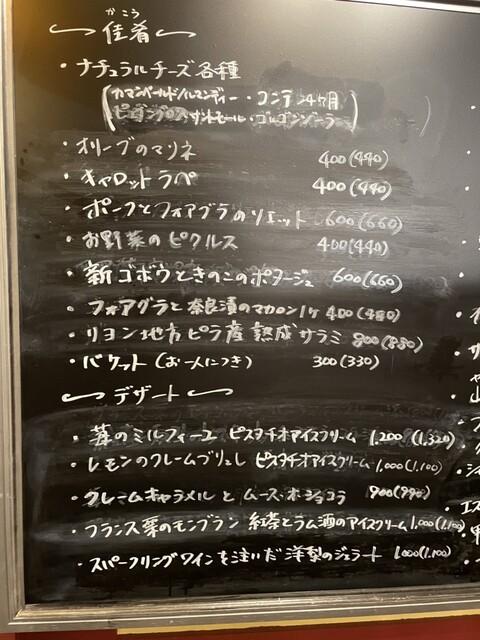 かこう
佳肴
・ナチュラルチーズ各種
(カマンベールド/ルマンディー・コンテ24ヶ月
サントモール・ゴルゴンゾーラ)
・オリーブのマリネ 400(440)
・キャロットラペ 400(440)
・ポークとフォアグラのリエット 600(660)
・お野菜のピクルス 400(440)
・新ゴボウときのこのポタージュ 600(660)
・フォアグラと奈良漬のマカロン1ヶ 400(440)
・リヨン地方ピラ産 熟成サラミ 800(880)
・バケット(お一人につき) 300(330)
デザート
・苺のミルフィーユ ピスタチオアイスクリーム 1.200(1.320)
・レモンのクレームブリュレ ピスタチオアイスクリーム 1.000(1.100)
・クレームキャラメルと ムース・オ・ショコラ 900(990)
・フランス栗のモンブラン 紅茶とラム酒のアイスクリーム 1.000(1.100)
・スパークリングワインを注いだ 洋梨のジェラート 1.000(1.100)